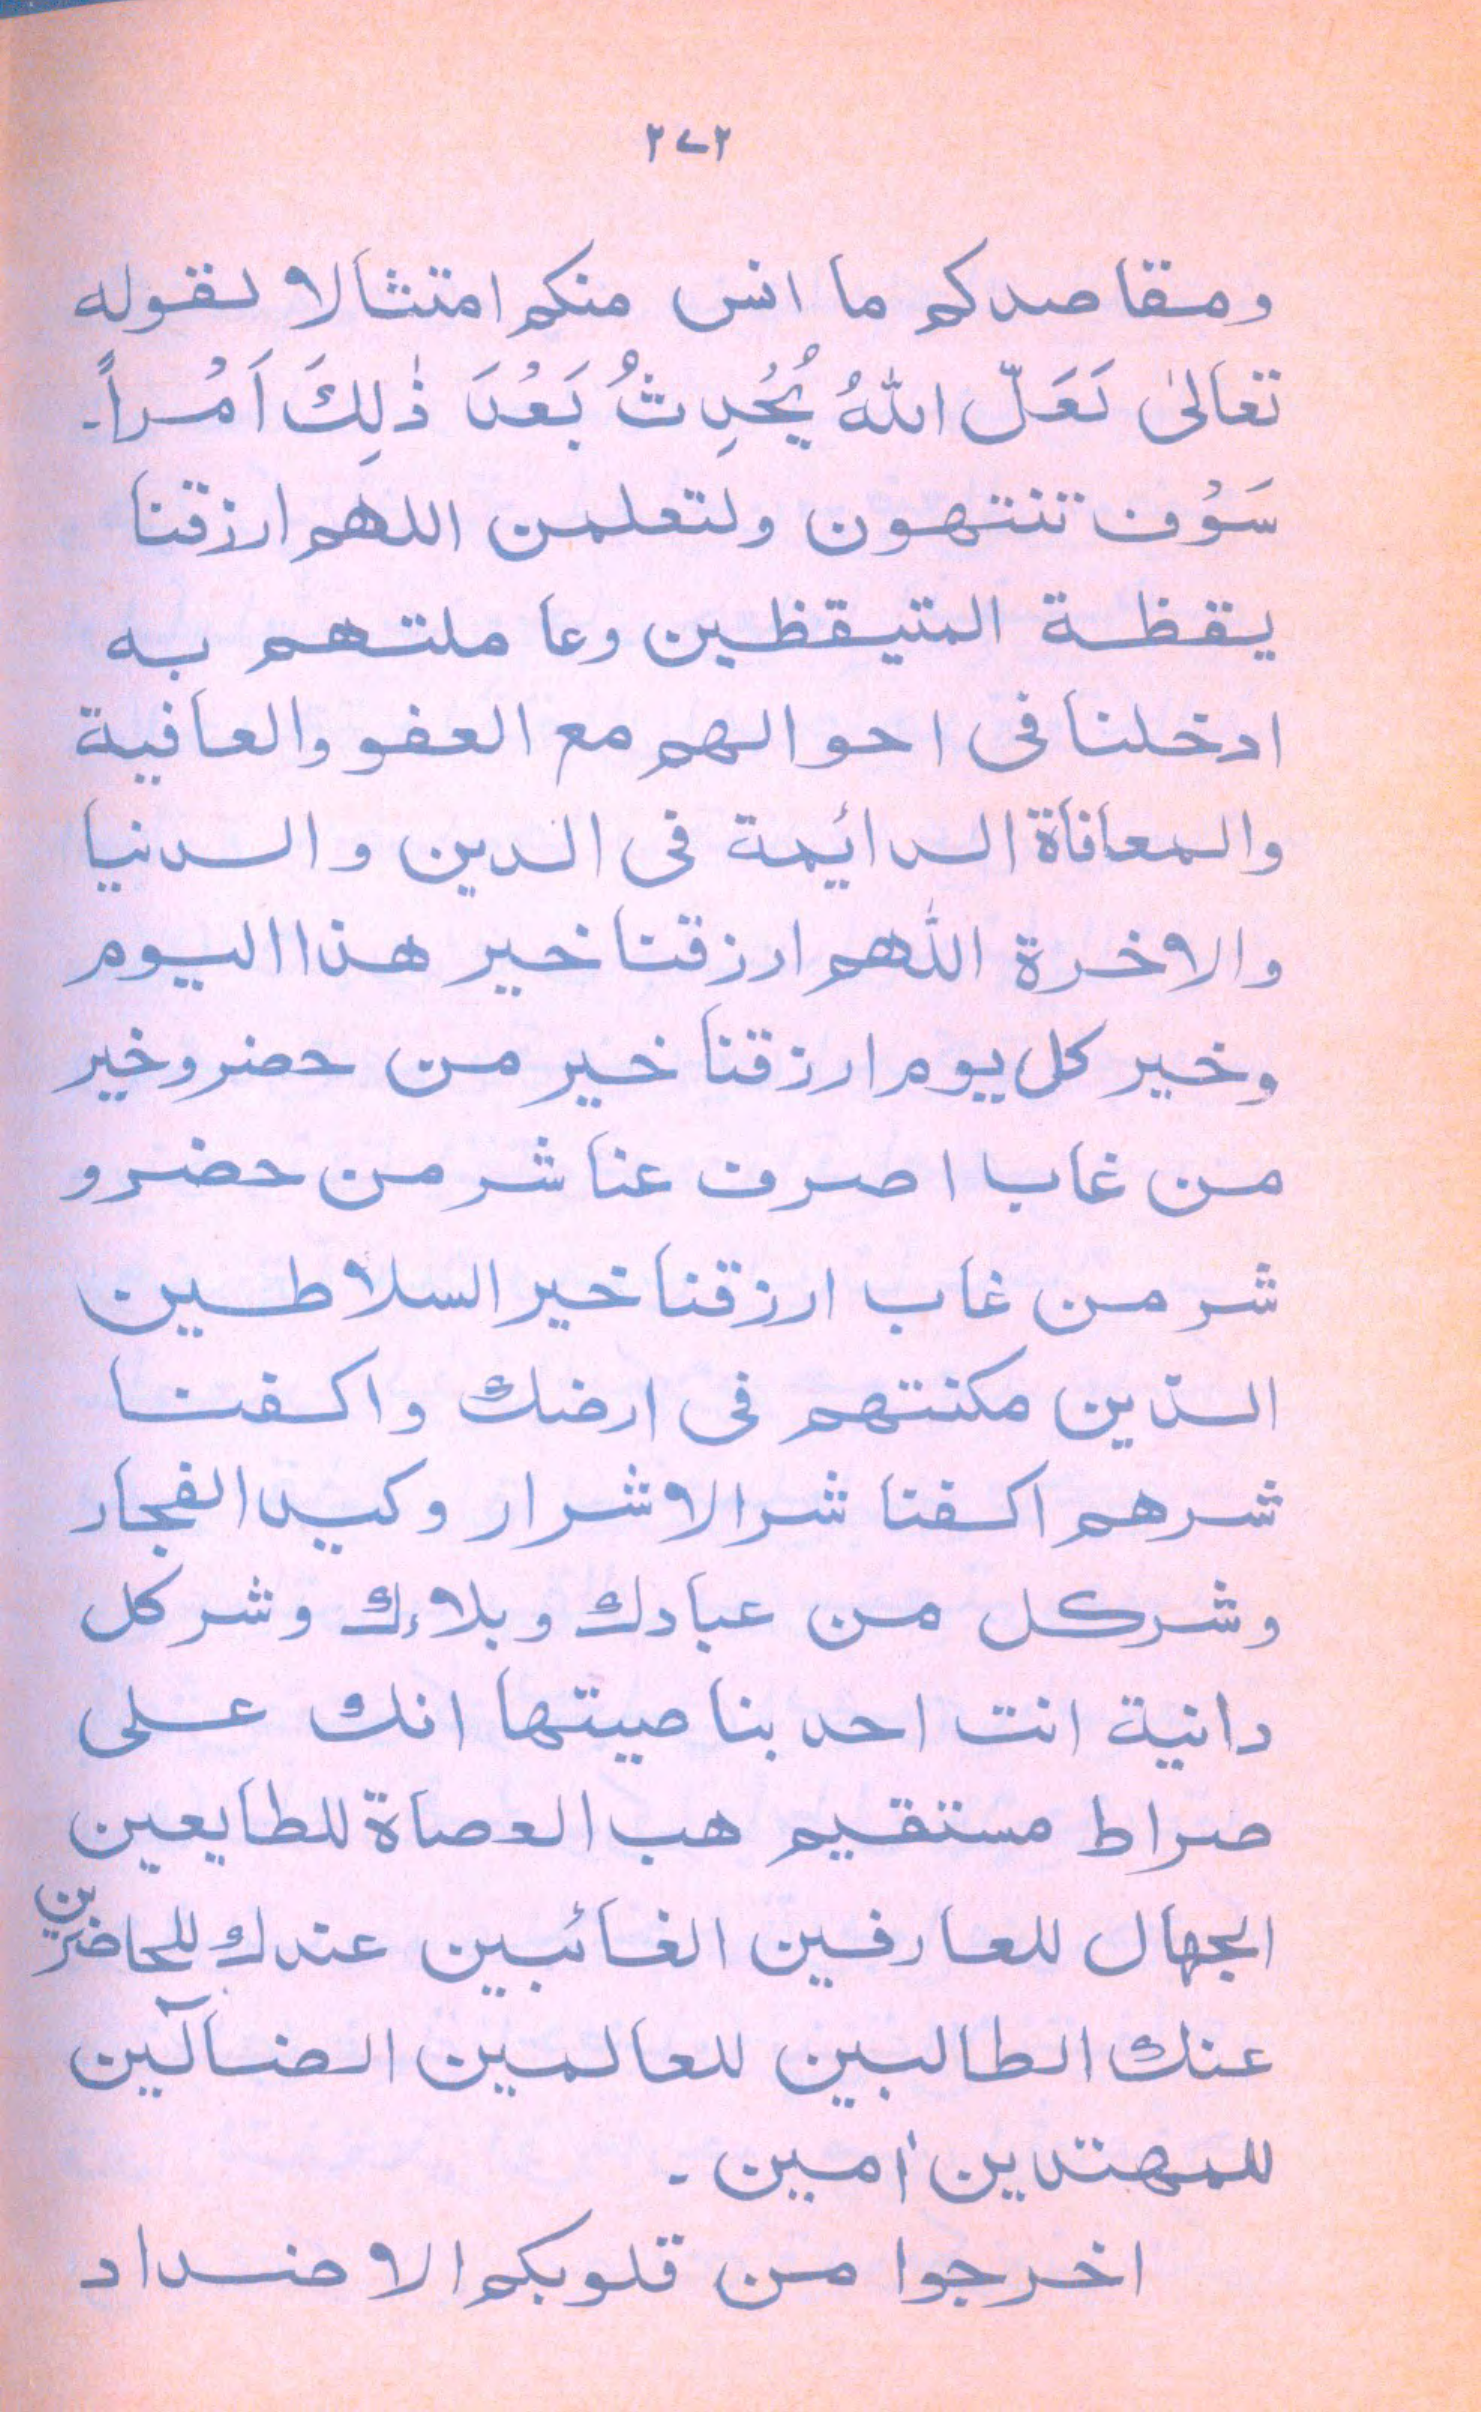 ٢٧٢
ومقاصدكم ما انس منكم امتثالا لقوله
تعالىٰ لَعَلّ اللهُ يُحْدِثُ بَعْدَ ذٰلِكَ اَمْراً۔
سَوْف تنتهون ولتعلمن اللهم ارزقنا
يقظة المتيقظين وعاملتهم به
ادخلنا فى احوالهم مع العفو والعافية
والمعافاة الدائيمة فى الدين والدنيا
والاخرة اللهم ارزقنا خير هذا اليوم
وخير كل يوم ارزقنا خير من حضر وخير
من غاب اصرف عنا شر من حضر و
شر من غاب ارزقنا خير السلاطين
الذين مكنتهم فى ارضك واكفنا
شرهم اكفنا شر الاشرار وكيد الفجار
وشركل من عبادك وبلاءك وشر كل
دانية انت احد بناصيتها انك على
صراط مستقيم هب العصاة للطايعين
الجهال للعارفين الغائبين عندك للحاضرين
عنك الطالبين للعالمين الضآلين
للمهتدين اٰمين ۔
اخرجوا من قلوبكم الاضداد